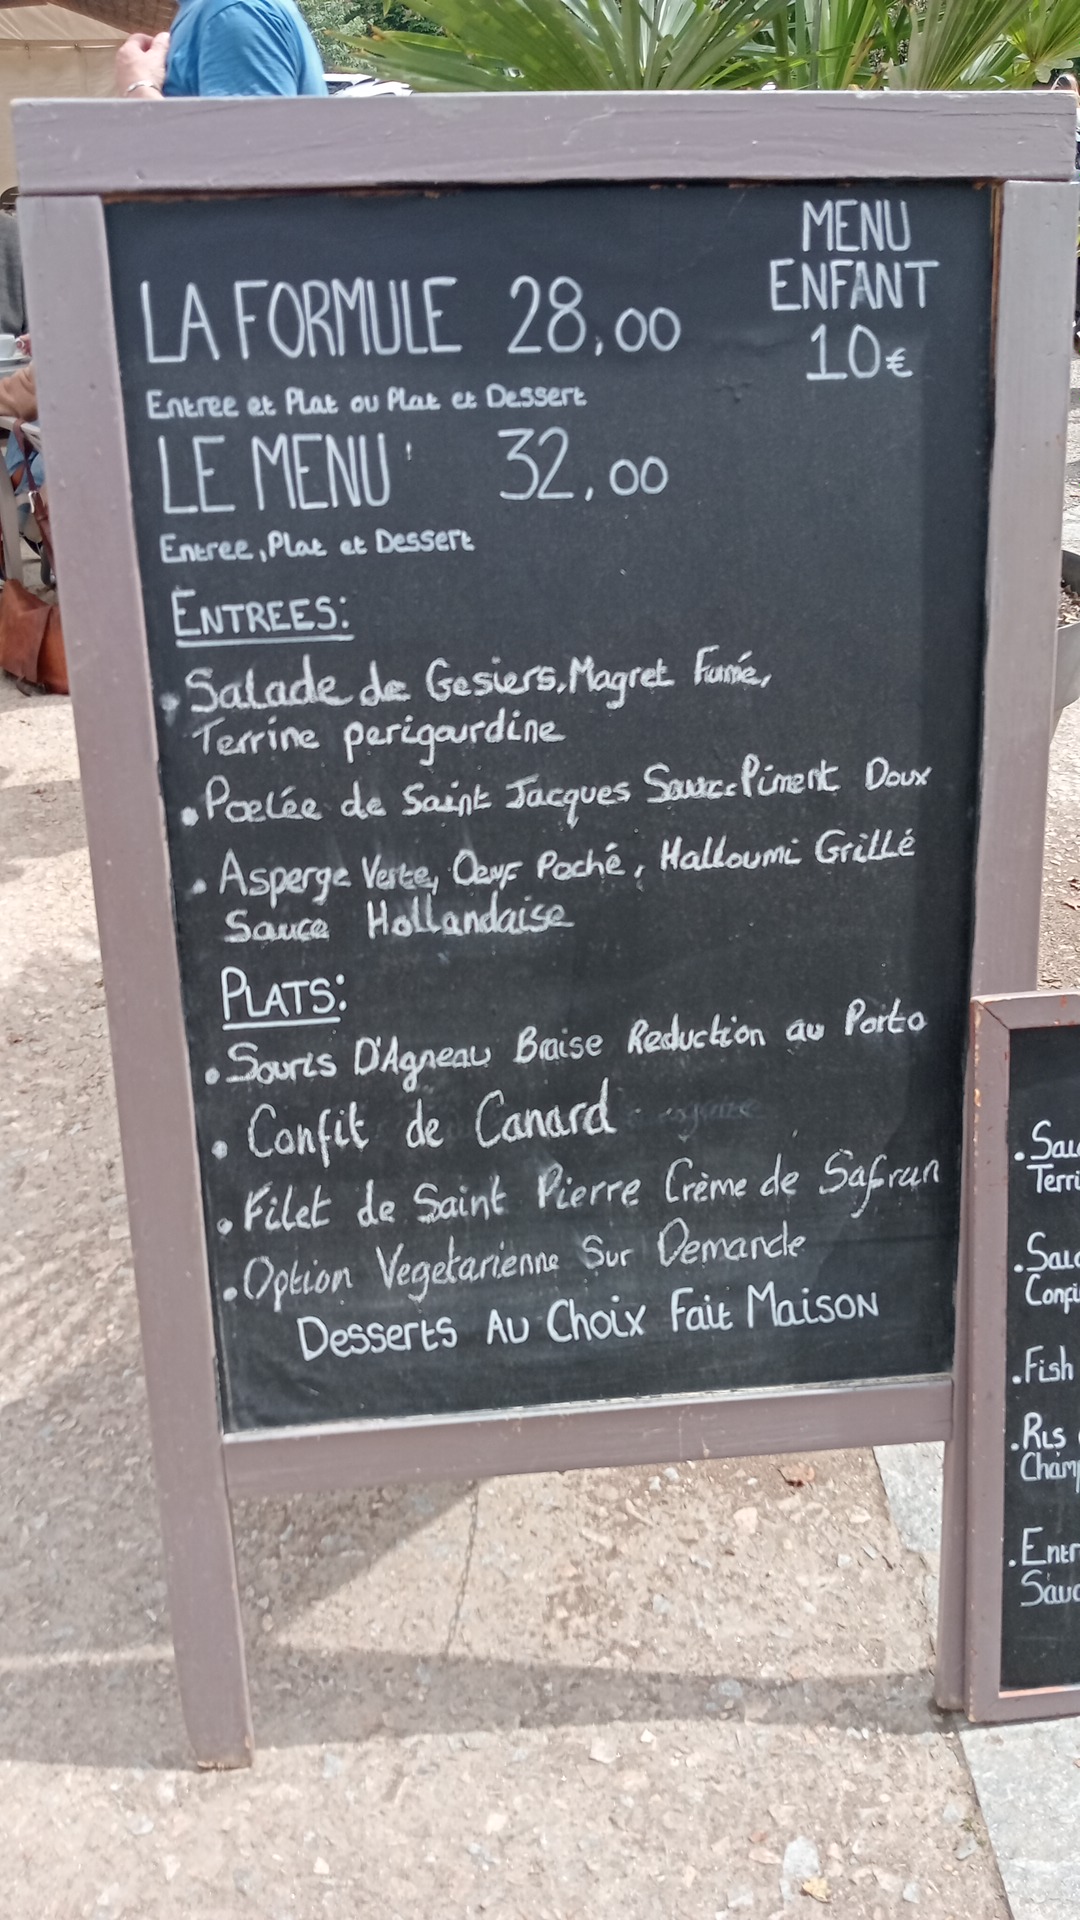 MENU
ENFANT
10€
LA FORMULE 28,00
Entree et Plat ou Plat et Dessert
LE MENU 32,00
Entree, Plat et Dessert
ENTREES:
• Salade de Gesiers, Magret Fumé,
Terrine perigourdine
• Poelée de Saint Jacques Sauce Piment Doux
• Asperge Verte, Oeuf Poché, Halloumi Grillé
Sauce Hollandaise
PLATS:
• Souris D'Agneau Braise Reduction au Porto
• Confit de Canard
• Filet de Saint Pierre Crème de Safran
• Option Vegetarienne Sur Demande
Desserts Au Choix Fait Maison
• Sal
Terri
• Sala
Confi
• Fish
• Ris
Cham
• Entr
Sauc